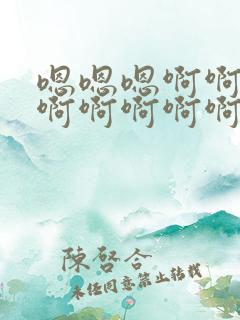 嗯嗯嗯啊啊
啊啊啊啊啊
陳啓合
未经同意禁止转载